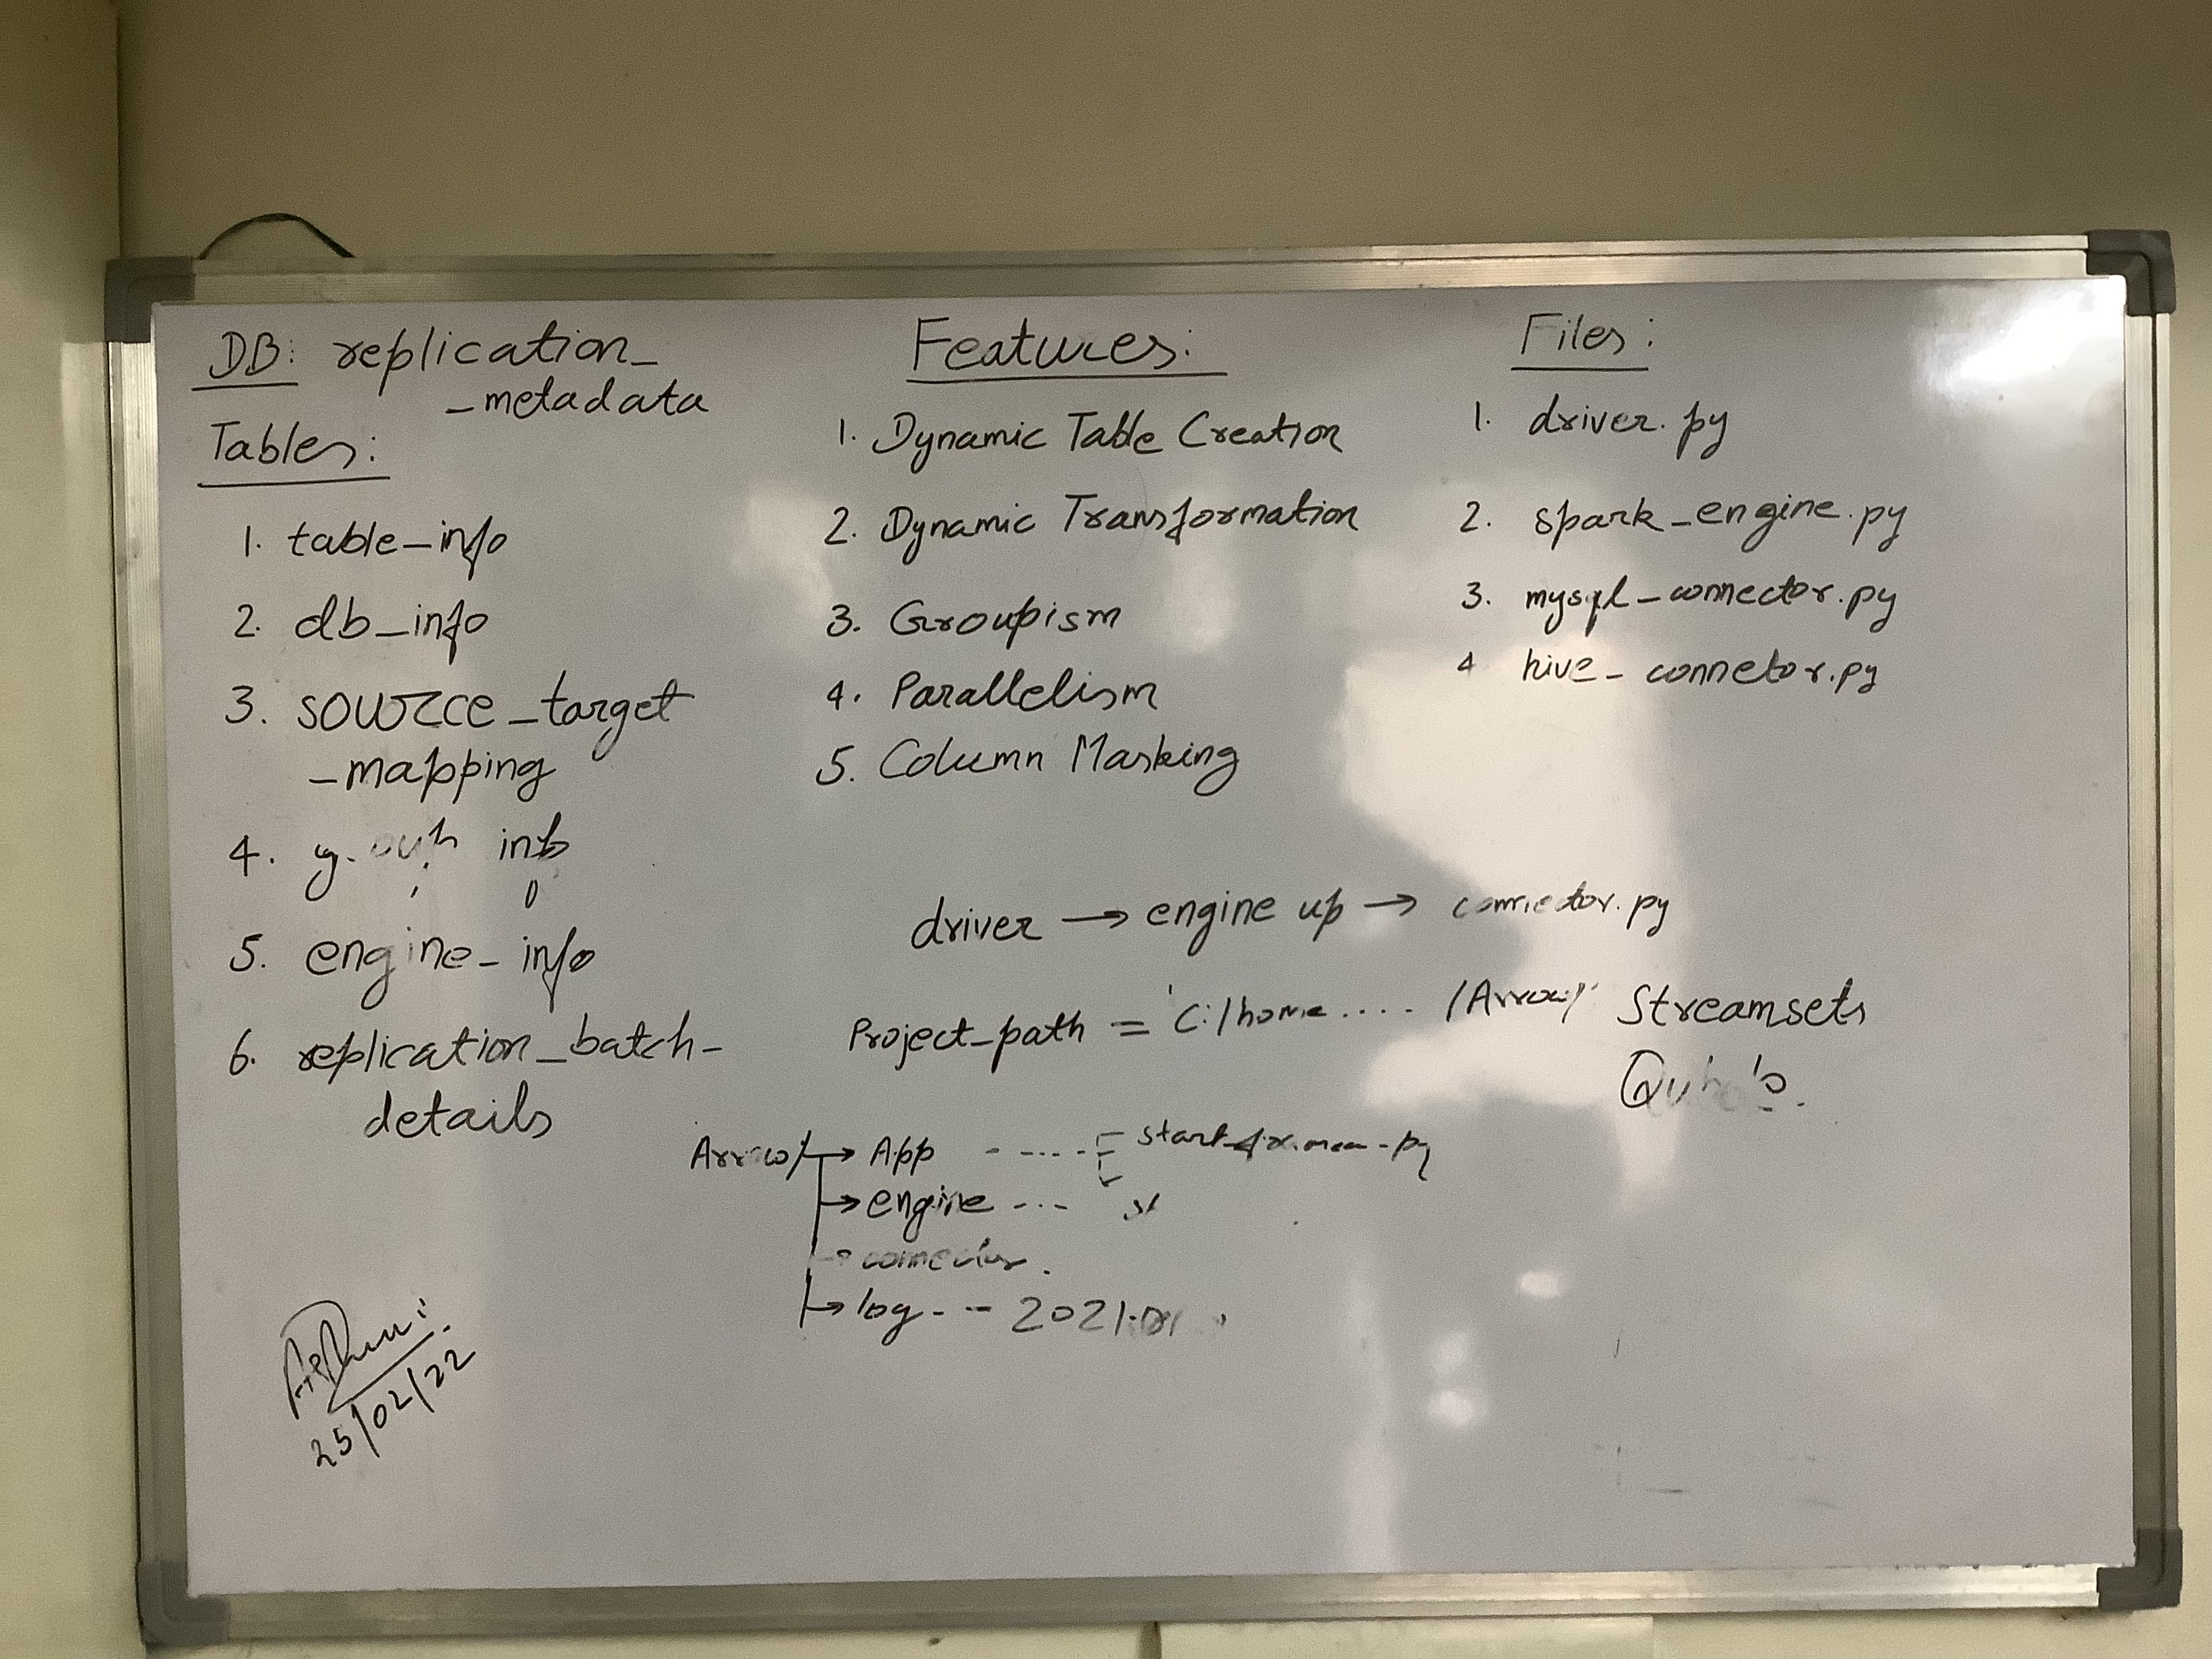 DB: replication_
_metadata
Tables:
1. table_info
2. db_info
3. source_target
_mapping
4. info
5. engine_info
6. replication_batch_
details
Features:
1. Dynamic Table Creation
2. Dynamic Transformation
3. Groupism
4. Parallelism
5. Column Masking
Files:
1. driver.py
2. spark_engine.py
3. mysql_connector.py
4 hive_connetor.py
driver → engine up → connector.py
Project_path = 'C:/home.... /Arrow/'
Streamsets
Arrow/ → App - ----
→ engine ---
→ connector.
→ log - -- 2021
25/02/22